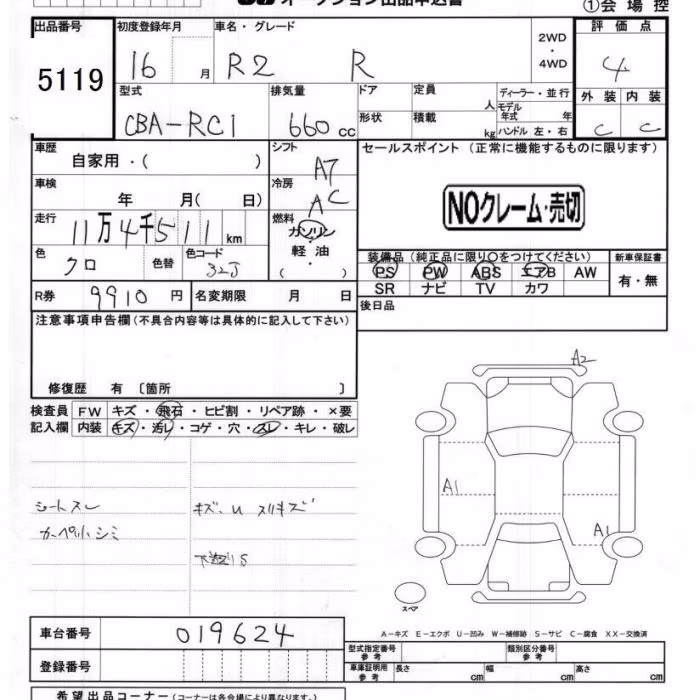 オークション出品申込書 ①会場控
出品番号 初度登録年月 車名・グレード 評価点
5119 16 月 R2 R 2WD ・ 4WD 4
型式 排気量 ドア 定員 人 ディーラー・並行 外装 内装
CBA-RC1 660 cc 形状 積載 kg モデル年式 年 ハンドル 左・右 C C
車歴 自家用・( ) シフト A7 セールスポイント (正常に機能するものに限ります)
車検 年 月( 日) 冷房 AC
NOクレーム・売切
走行 11万4千511 km 燃料 ガソリン・軽油・( )
色 クロ 色替 色コード 32J 装備品 (純正品に限り〇をつけてください) 新車保証書
PS PW ABS エアB AW 有・無
SR ナビ TV カワ
R券 9910 円 名変期限 月 日 後日品
注意事項申告欄 (不具合内容等は具体的に記入して下さい)
修復歴 有 〔箇所 〕
検査員 FW キズ・飛石・ヒビ割・リペア跡・×要
記入欄 内装 キズ・汚レ・コゲ・穴・スレ・キレ・破レ
A2
A1
A1
シートスレ キズ、U スリキズ
カーペットシミ
下廻りS
スペア
A-キズ E-エクボ U-凹み W-補修跡 S-サビ C-腐食 XX-交換済
車台番号 019624 型式指定番号 参考 類別区分番号 参考
登録番号 車庫証明用 参考 長さ cm 幅 cm 高さ cm
希望出品コーナー (コーナーは各会場により異なります。)